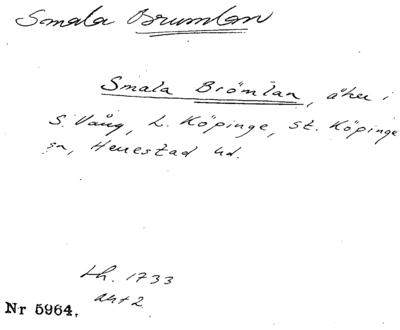 Smala Brumlan
Smala Brömlan, åker i
S. Vång, L. Köpinge, St. Köpinge
sn, Herrestad hd.
Lh. 1733
akt 2.
Nr 5964.